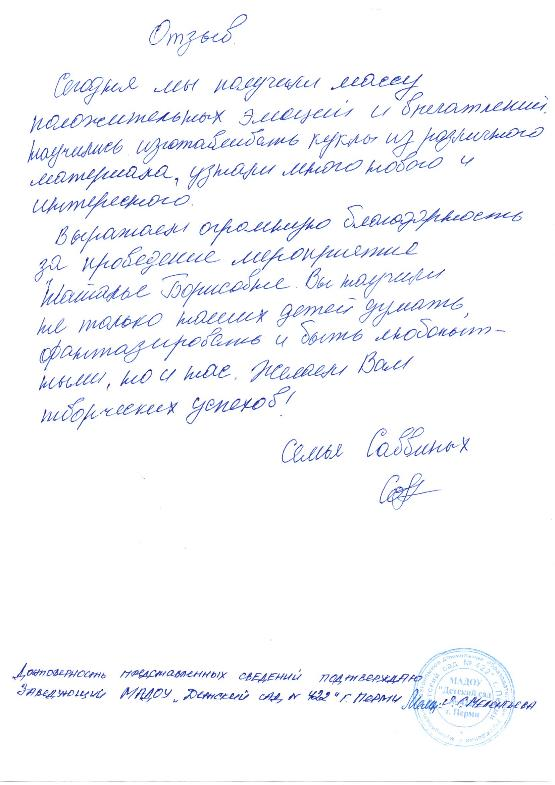 Отзыв.
Сегодня мы получили массу
положительных эмоций и впечатлений.
Научились изготавливать куклы из различного
материала, узнали много нового и
интересного.
Выражаем огромную благодарность
за проведение мероприятие
Наталье Борисовне. Вы научили
не только наших детей думать,
фантазировать и быть любопыт-
ными, но и нас. Желаем Вам
творческих успехов!
Семья Саввиных
Достоверность представленных сведений подтверждаю
Заведующий МАДОУ „Детский сад № 422" г. Перми
МАДОУ
"Детский сад
г. Перми